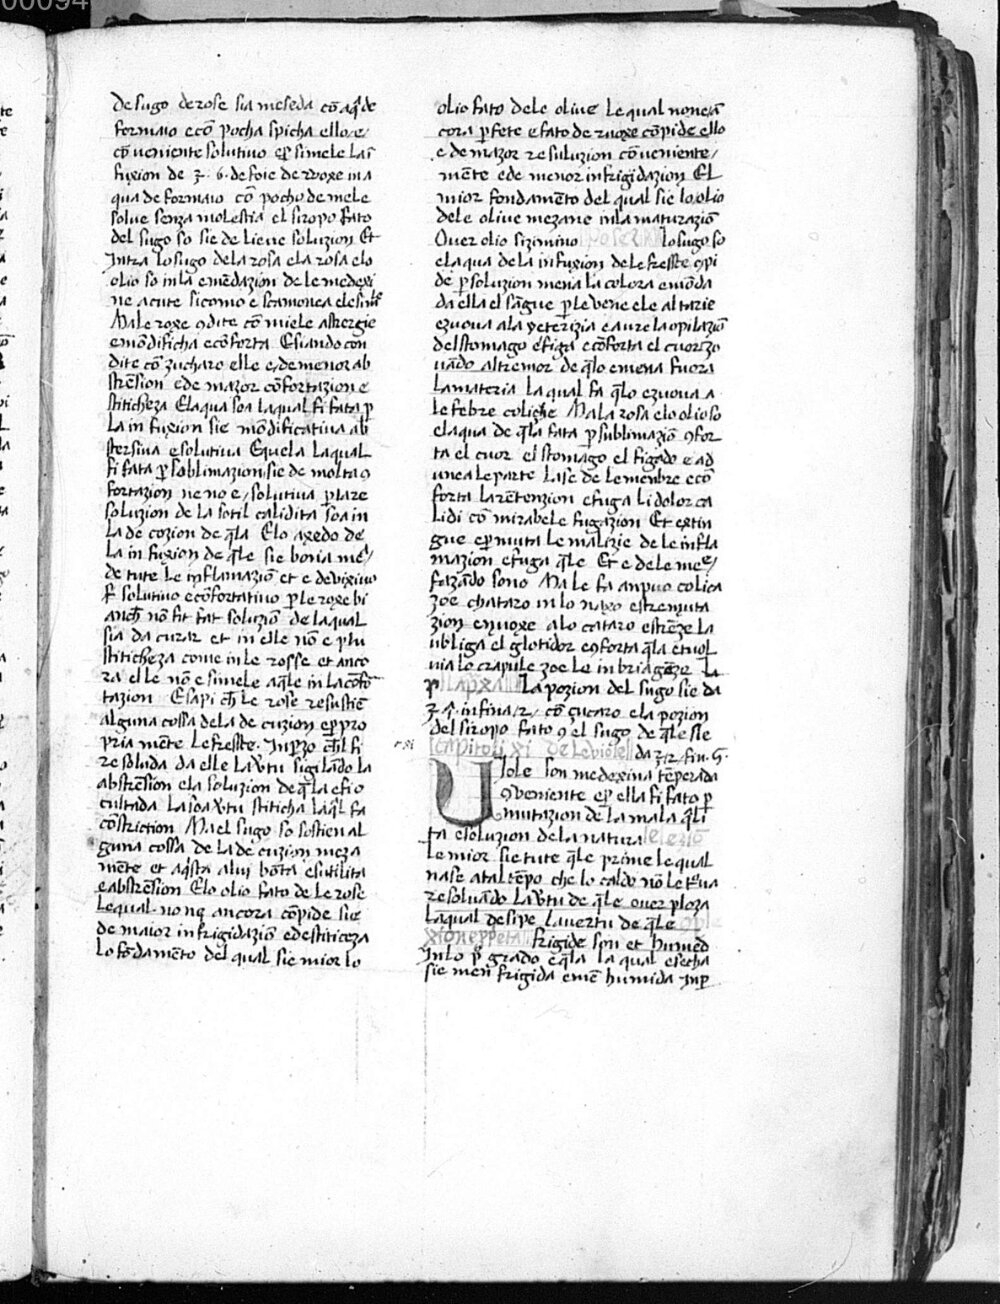 de sugo de rose sia meseda cō aq̄ de
formaio e cō pocha spicha ello e
cōueniente solutiuo eꝑ simele la ī
fuxion de ʒ. 6. de foie de roxe in a
qua de formaio cō pocho de mele
solue senza molestia el siropo fato
del sugo so sie de lieue soluzion Et
Intra lo sugo de la rosa e la rosa e lo
olio so in la emēdazion de le medexi
ne acute si como e scamonea e le simile
Ma le roxe 9dite cō miele astergie
e mōdificha e cōforta E siando con
dite cō zucharo elle e de menor ab
strēsion e de mazor cōfortazion e
stiticheza E la qua soa la qual fi fata ꝑ
la infuxion sie mōdificatiua ab
stersiua e solutiua E quela la qual
fi fata ꝑ soblimazion sie de molta 9
fortazion ne no e solutiua ꝑ la re
soluzion de la sotil calidita soa in
la decozion de q̄la E lo axedo de
la infuxion de q̄le sie bona me
de tute le inflamaziō et e de uixiuo
solutiuo e cōfortatiuo ꝑ le roxe bi
anch nō fit fat soluziō de la qual
sia da curar et in elle nō e plu
stiticheza come in le rosse et anco
ra elle nō e simele a q̄le in la cōfo
tazion E sapi ch le rose resustiē
alguna cossa de la decuzion eꝑ pro
pria mente le fresche. Inꝑzo ch l fi
resoluda da elle la v̄tu sigilādo la
abstrēsion e la soluzion de q̄la e fi o
cultada la soa v̄tu stiticha la q̄l fa
cōstriction Ma el sugo so sostien al
guna cossa de la decuzion meza
mēte et aq̄sta a lui bōta e sutilita
e abstrēsion E lo olio fato de le rose
le qual no nē ancora cōpide sie
de maior infrigidaziō e de stiticeza
lo fōdamēto del qual sie mior lo
olio fato de le oliue le qual non e ā
cora ꝑfete e fato de roxe cōpide ello
e de mazor resoluzion cōueniente
mēte e de menor infrigidazion El
mior fondamēto del qual sie lo olio
de le oliue mezane in la maturaziō
Ouer olio sizimino lo sugo so
e la qua de la infuxion de le fresche 9pi
de ꝑ soluzion mena la colora e mōda
da ella el sāgue ꝑ le uene e le altarie
e zuoua a la yeterizia e aure la opilaziō
del stomago e figa e cōforta el cuor zo
uādo al tremor de q̄lo e mena fuora
la materia la qual fa q̄lo e zuoua a
le febre coliche Ma la rosa e lo olio so
e la qua de q̄la fata ꝑ sublimaziō 9for
ta el cuor el stomago el figado e ad
unca le parte lase de le membre e cō
forta la retenzion e fuga li dolor ca
lidi cō mirabele fugazion Et extin
gue e ꝑmuta le malizie de le infla
mazion e fuga q̄le Et e de le me
fazādo sono Ma le fa anpuo colica
zoe chataro in lo naxo e stremuta
zion e nuoxe a lo cataro e strēze la
ubliga el glotidor e 9forta q̄la e tuol
uia lo crapule zoe le inbriageze la
La pozion del sugo sie da
infina cō zucaro e la pozion
del siropo fato 9 el sugo de q̄le sie
Capitoli xi de le uiole
Uiole son medexina tēperada
9ueniente eꝑ ella fi fato ꝑ
mutazion de la mala q̄li
ta e soluzion de la natura
le mior sie tute q̄le prime le qual
nase a tal tēpo che lo caldo nō le
resoluādo la v̄tu de q̄le ouer ploza
la qual desipe la uertu de q̄le
frigide son et humed
In lo ṗ grado e q̄la la qual e secha
sie men frigida e mē humida Inꝑ